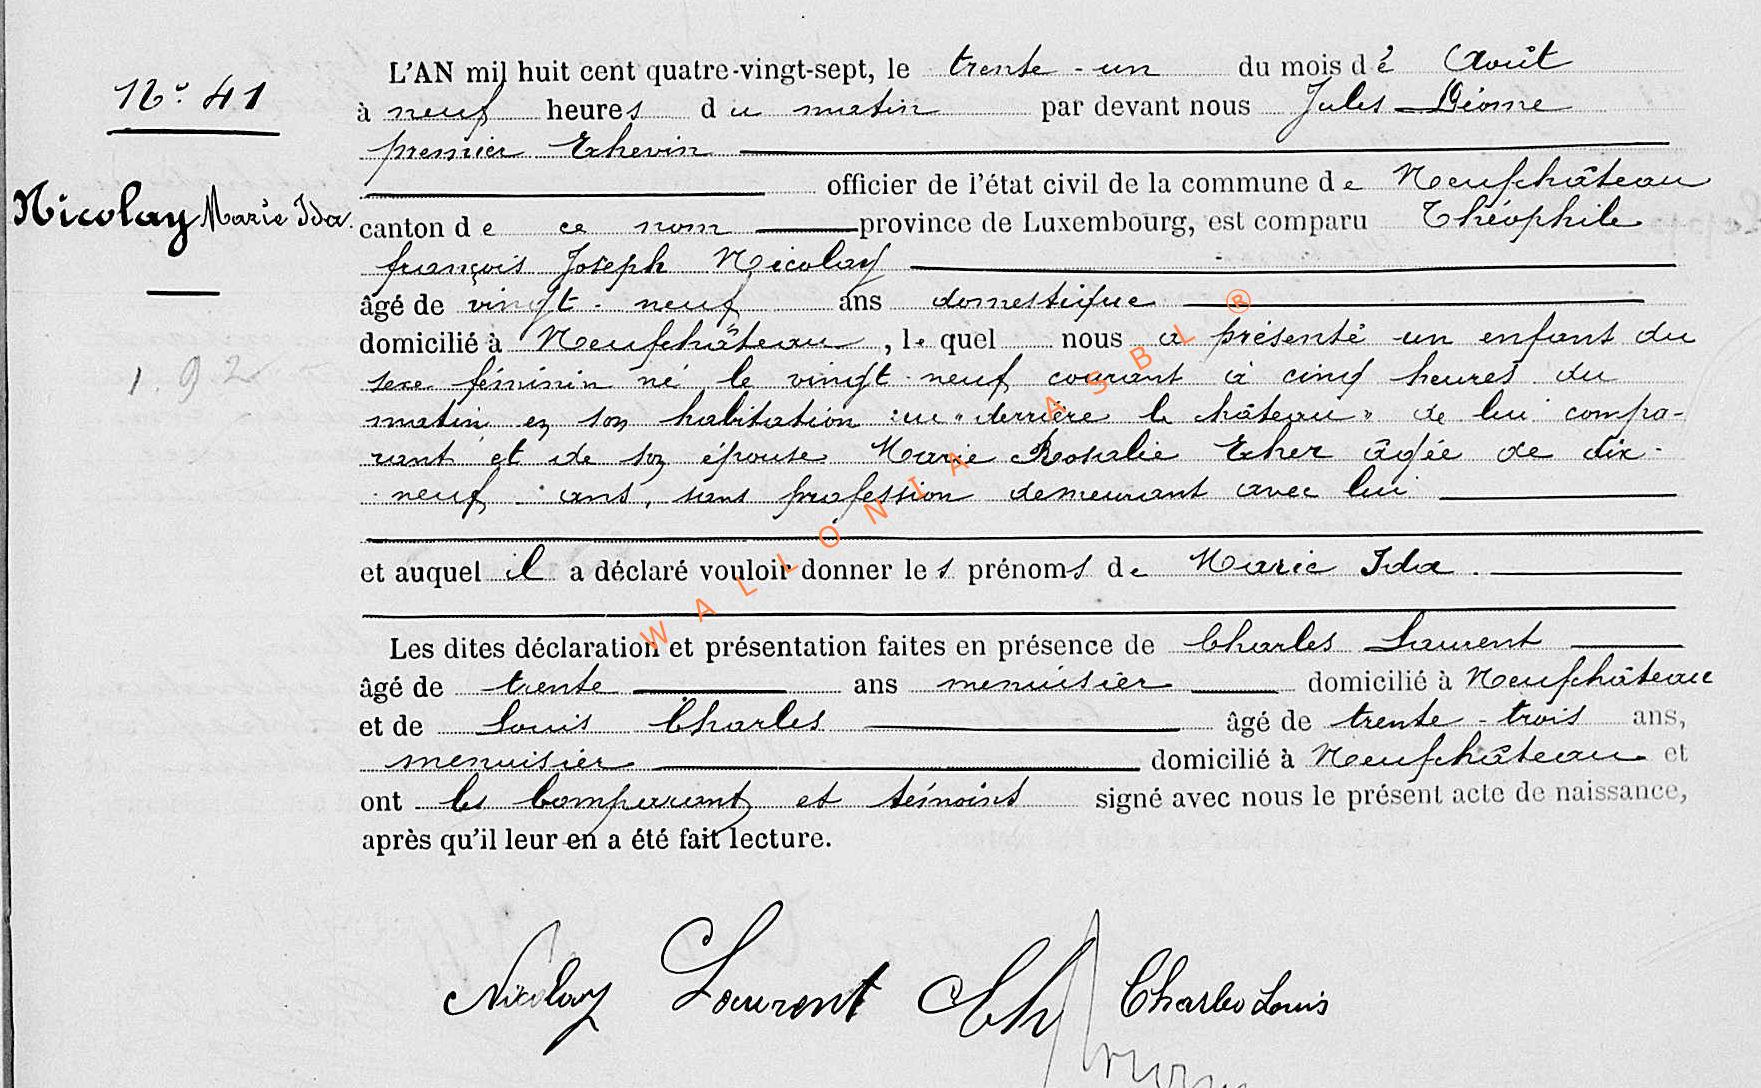 L'AN mil huit cent quatre-vingt-sept, le trente-un du mois de Août
N° 41
à neuf heures du matin par devant nous Jules Léonne
premier Echevin
officier de l'état civil de la commune de Neufchâteau
Nicolay Marie Ida.
canton de ce nom province de Luxembourg, est comparu Théophile
françois Joseph Nicolay
âgé de vingt-neuf ans domestique
domicilié à Neufchâteau, le quel nous a présenté un enfant du
1.92
sexe féminin né le vingt-neuf courant à cinq heures du
matin en son habitation rue "derrière le château" de lui compa-
rant et de son épouse Marie Rosalie Echer âgée de dix-
neuf ans, sans profession demeurant avec lui
et auquel il a déclaré vouloir donner les prénoms de Marie Ida.
Les dites déclaration et présentation faites en présence de Charles Laurent
âgé de trente ans menuisier domicilié à Neufchâteau
et de Louis Charles âgé de trente-trois ans,
menuisier domicilié à Neufchâteau et
ont les Comparant et témoins signé avec nous le présent acte de naissance,
après qu'il leur en a été fait lecture.
Nicolay Laurent Ch Charles Louis
WALLONIA ASBL ®